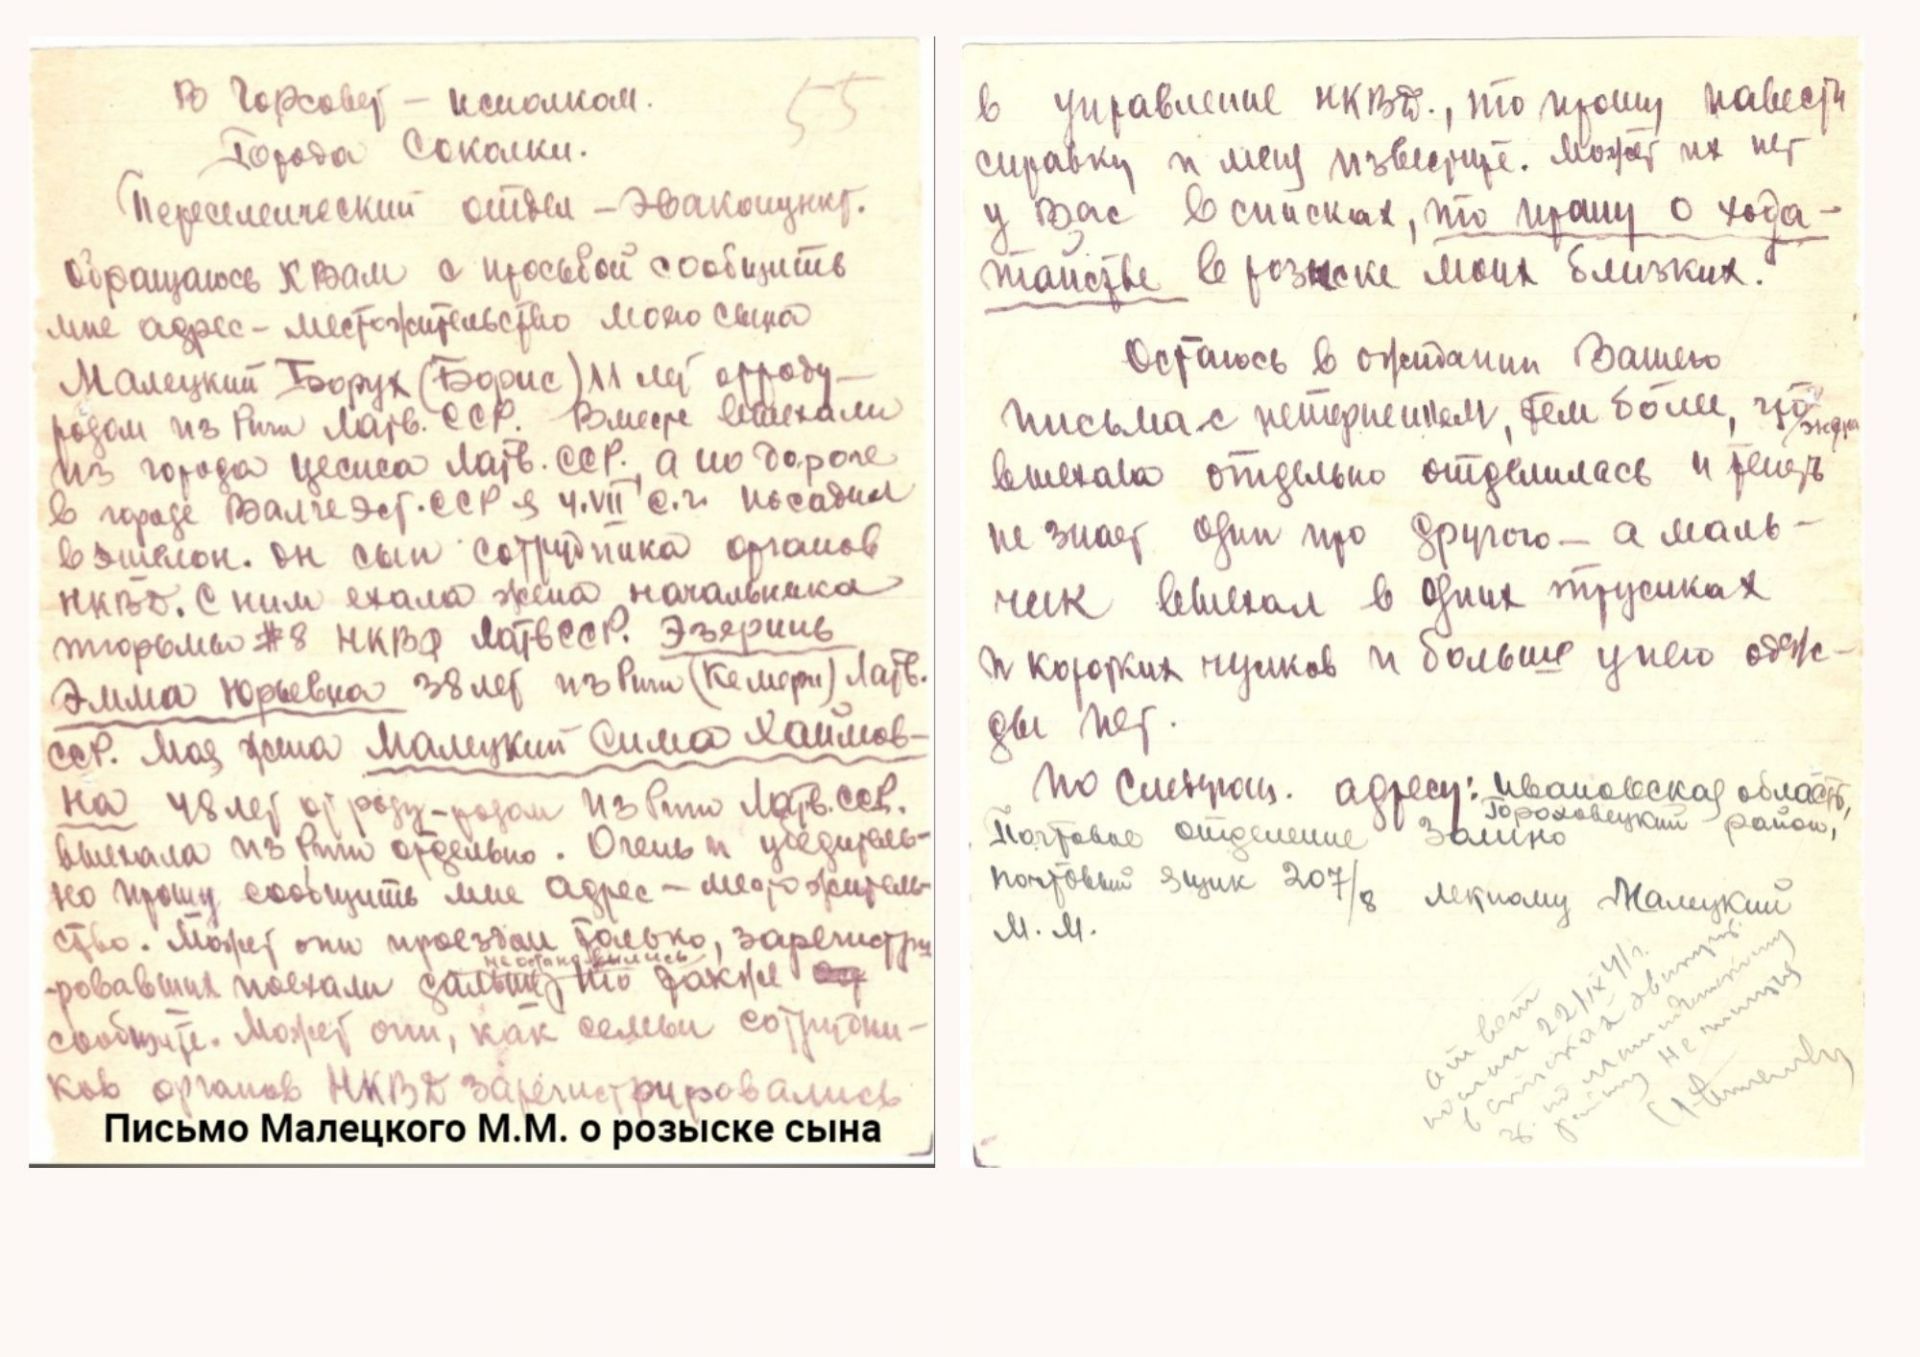 В Горсовет – исполком.
55
Города Соколки.
Переселенческий отдел – эвакопункт.
Обращаюсь к Вам с просьбой сообщить
мне адрес – местожительство моего сына
Малецкий Борух (Борис) 11 лет отроду –
родом из Риги Латв. ССР. Вместе выехали
из города Цесиса Латв. ССР., а по дороге
в городе Валге Эст. ССР я 4.VII с.г. посадил
в эшелон. Он сын сотрудника органов
НКВД. С ним ехала жена начальника
тюрьмы #8 НКВД Латв ССР. Эзеринь
Эмма Юрьевна 38 лет из Риги (Кемери) Латв.
ССР. Моя жена Малецкий Сима Хаимов-
на 48 лет от роду – родом из Риги Латв. ССР.
выехала из Риги отдельно. Очень и убедитель-
но прошу сообщить мне адрес – местожитель-
ство. Может они проездом только, зарегистри-
не остановились
-ровавших поехали дальше, то также
сообщите. Может они, как семьи сотрудни-
ков органов НКВД зарегистрировались
Письмо Малецкого М.М. о розыске сына
в управление НКВД., то прошу навести
справку и меня известите. Может их нет
у Вас в списках, то прошу о хода-
тайстве в розыске моих близких.
Остаюсь в ожидании Вашего
письма с нетерпением, тем боле, что
выехала отдельно отделилась и теперь
не знает один про другого – а маль-
чик выехал в одних трусиках
и коротких чулков и больше у него одеж-
ды нет.
По следующ. адресу: Ивановская область,
Гороховецкий район,
Почтовое отделение Золино
почтовый ящик 207/8 лекпому Малецкий
М.М.
ответ
послан 22/IX 41 г.
в списках эвакуир.
гр. по
району не